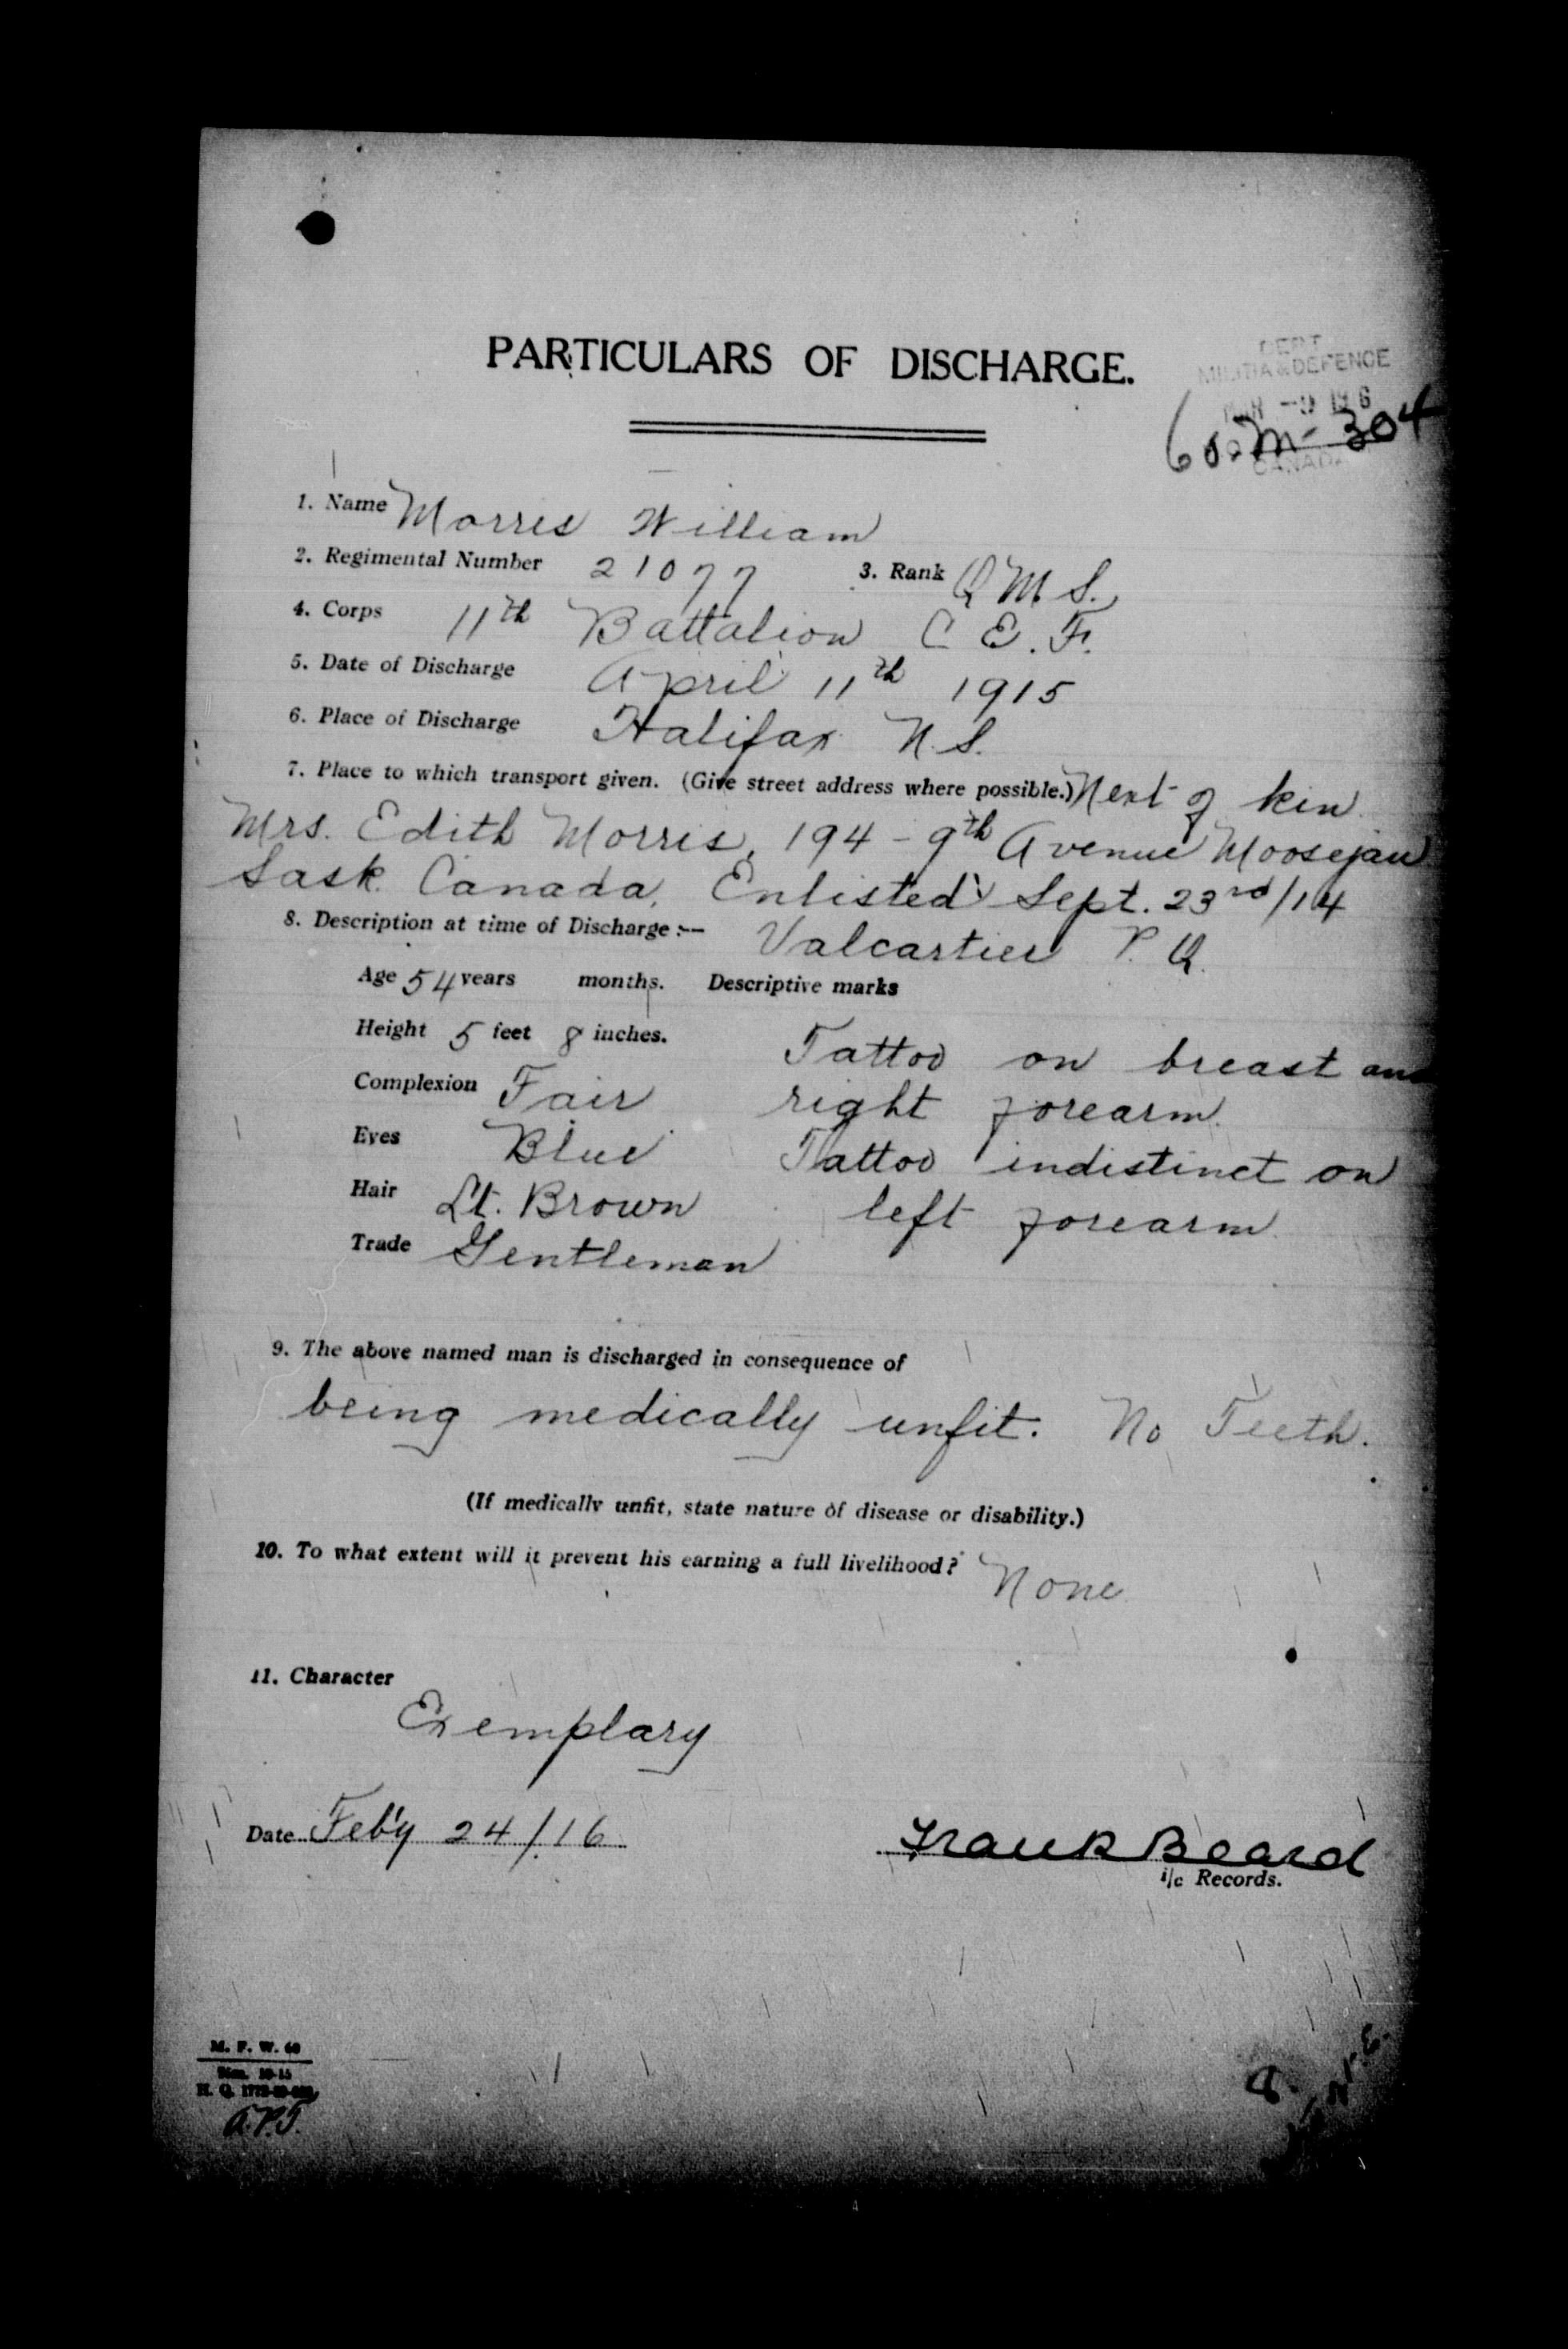 PARTICULARS OF DISCHARGE.
DEPT.
MILITIA & DEFENCE
CANADA
1. Name Morris William
2. Regimental Number 21077 3. Rank Q M S.
4. Corps 11th Battalion C E. F.
5. Date of Discharge April 11th 1915
6. Place of Discharge Halifax N. S.
7. Place to which transport given. (Give street address where possible.) Next of kin
Mrs. Edith Morris, 194 - 9th Avenue Moosejaw
Sask. Canada. Enlisted Sept. 23rd/14
8. Description at time of Discharge :— Valcartier P. Q.
Age 54 years months. Descriptive marks
Height 5 feet 8 inches. Tattoo on breast and
Complexion Fair right forearm.
Eyes Blue Tattoo indistinct on
Hair Lt. Brown left forearm
Trade Gentleman
9. The above named man is discharged in consequence of
being medically unfit. No Teeth.
(If medically unfit, state nature of disease or disability.)
10. To what extent will it prevent his earning a full livelihood? None
11. Character
Exemplary
Date Feb'y 24/16 Frank Beard
i/c Records.
M. F. W. 60